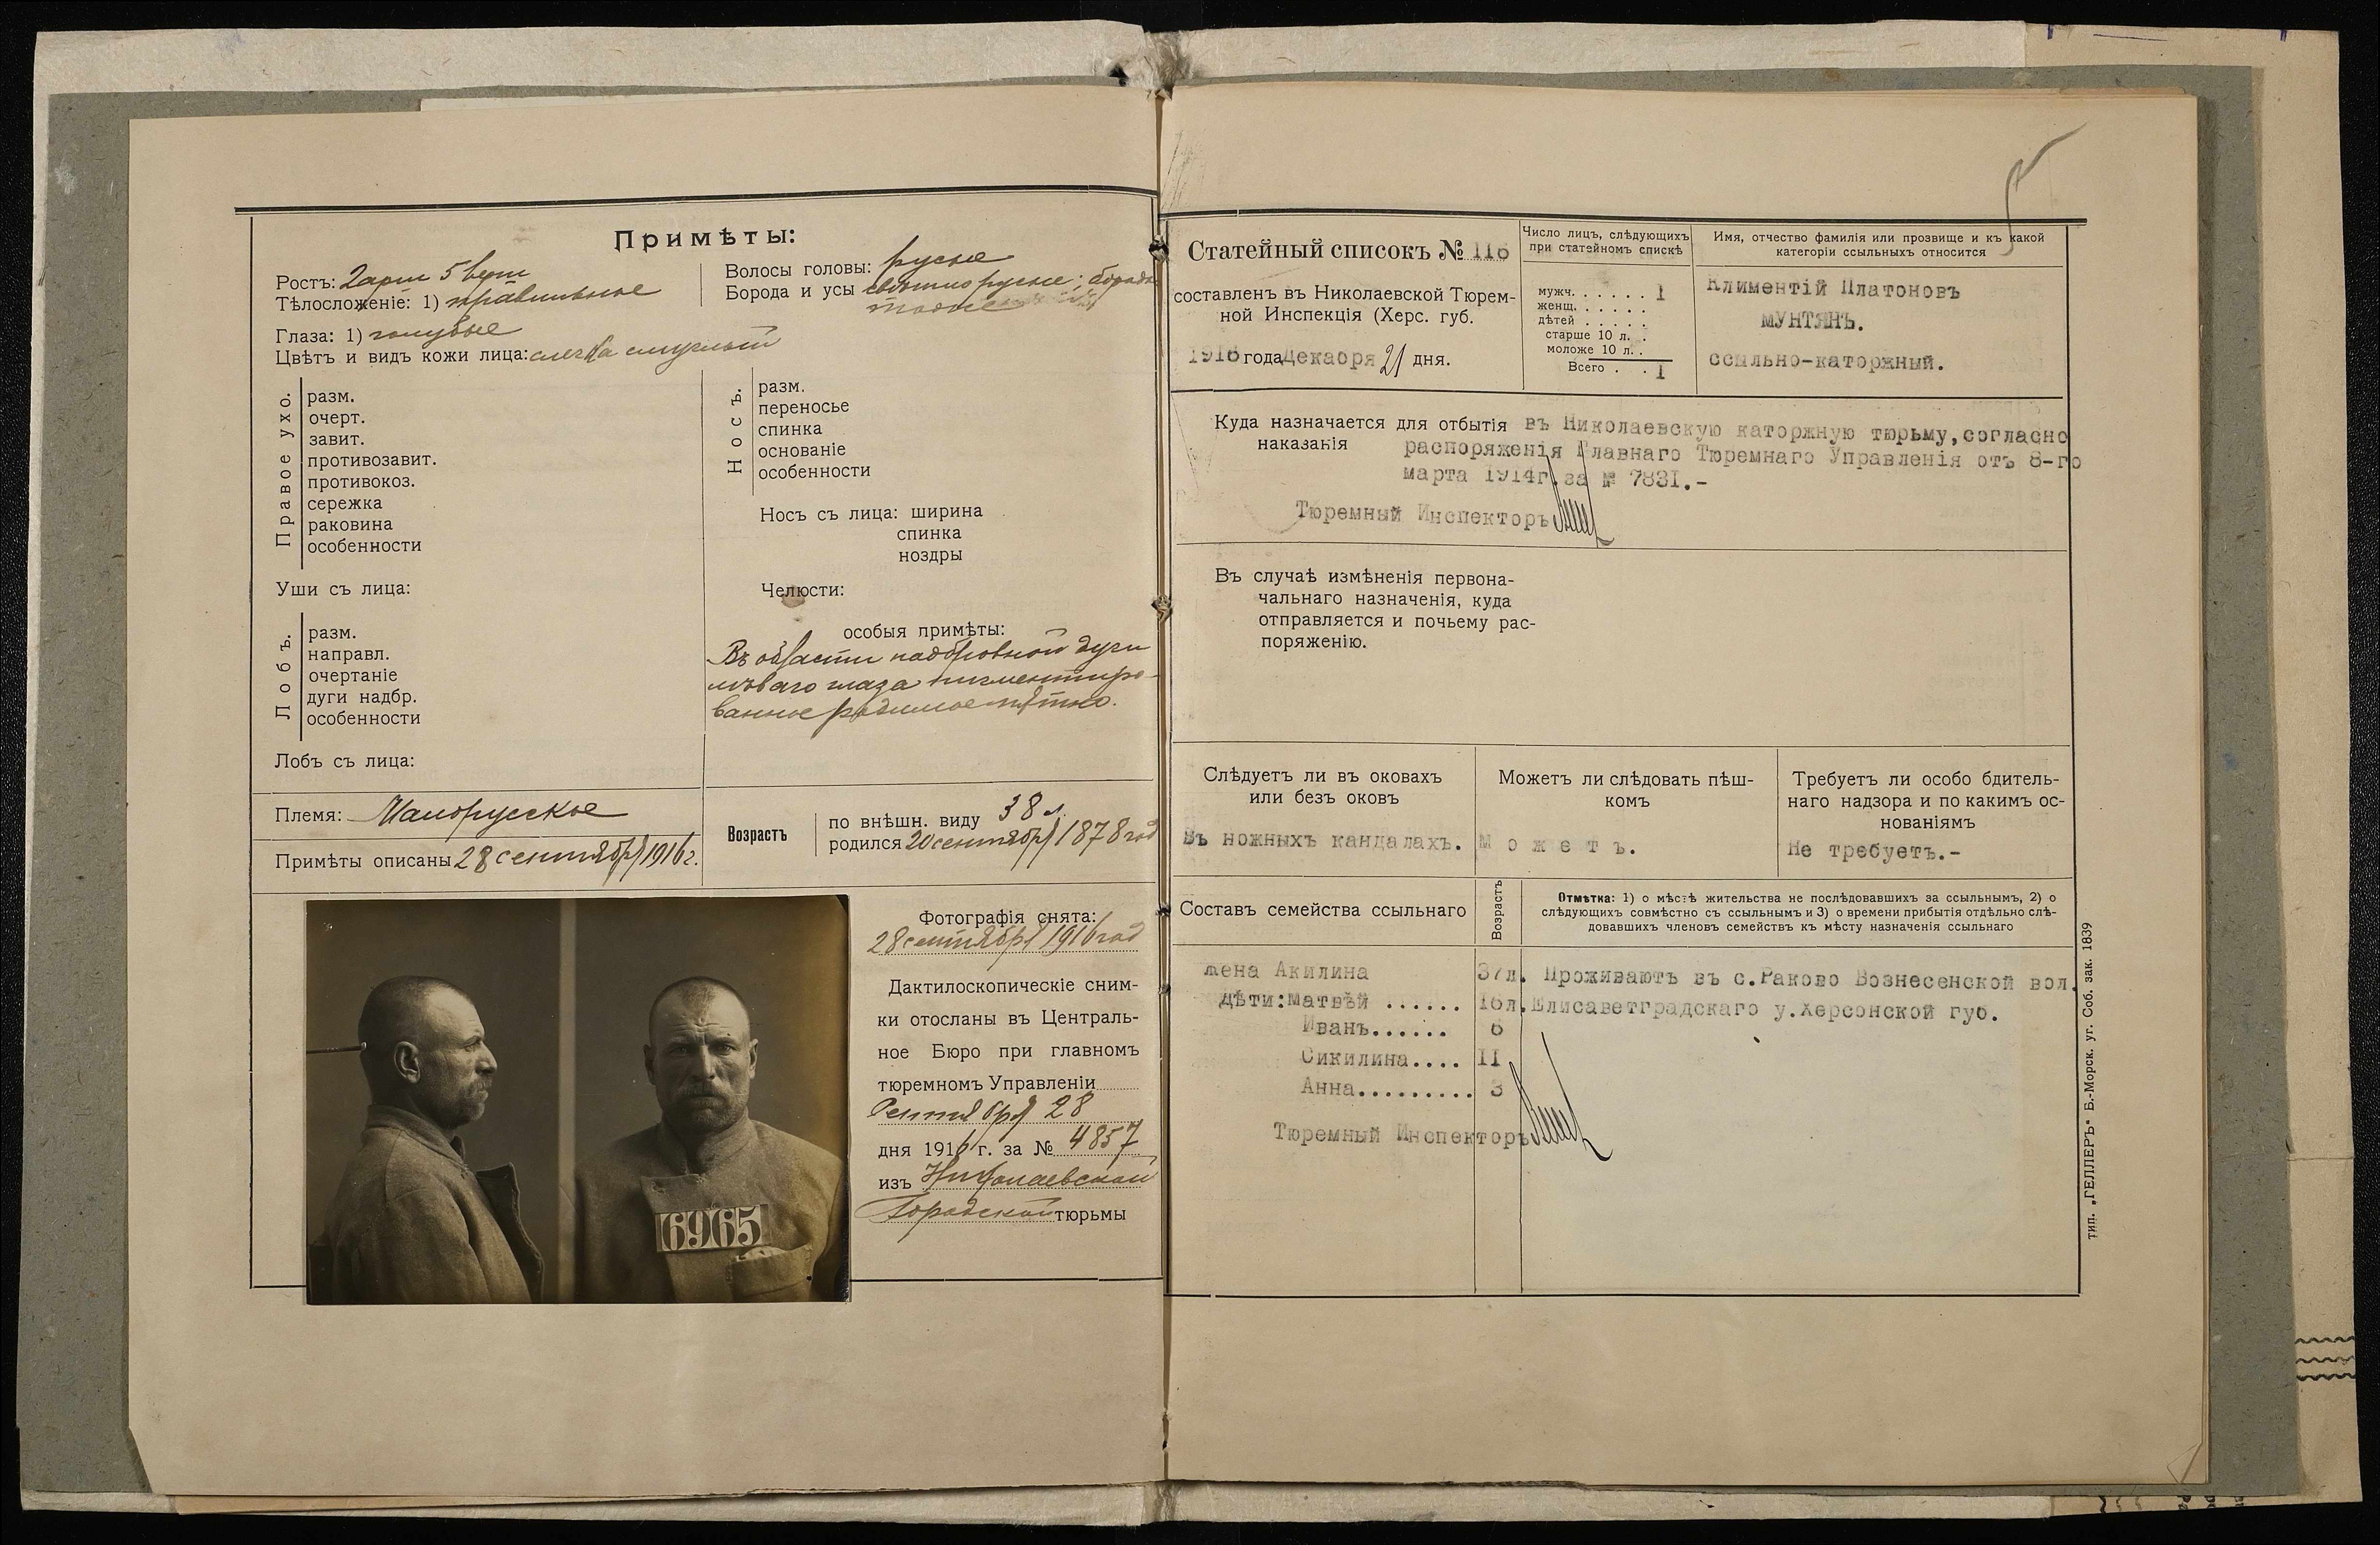 Примѣты:
Ростъ: 2 арш 5 верш
Тѣлосложеніе: 1) правильное
Волосы головы: русые
Борода и усы свѣтло русые; борода
Глаза: 1) голубые
Цвѣтъ и видъ кожи лица: слегка смуглый
Правое ухо.
разм.
очерт.
завит.
противозавит.
противокоз.
сережка
раковина
особенности
Носъ.
разм.
переносье
спинка
основаніе
особенности
Носъ съ лица: ширина
спинка
ноздры
Уши съ лица:
Челюсти:
Лобъ.
разм.
направл.
очертаніе
дуги надбр.
особенности
особыя примѣты:
Въ области надбровной дуги
лѣваго глаза пигментиро-
ванное родимое пятно.
Лобъ съ лица:
Племя: Малорусское
Примѣты описаны 28 сентября 1916 г.
Возрастъ
по внѣшн. виду 38 л.
родился 20 сентября 1878 год
Фотографія снята:
28 сентября 1916 год
Дактилоскопическіе сним-
ки отосланы въ Централь-
ное Бюро при главномъ
тюремномъ Управленіи
Сентября 28
дня 1916 г. за № 4857
изъ Николаевской
Городской тюрьмы
6965
Статейный списокъ № 116
составленъ въ Николаевской Тюрем-
ной Инспекція (Херс. губ.
1916 года Декабря 21 дня.
Число лицъ, слѣдующихъ
при статейномъ спискѣ
мужч. . . . . . 1
женщ. . . . . .
дѣтей . . . . .
старше 10 л. .
моложе 10 л. .
Всего . . 1
Имя, отчество фамилія или прозвище и къ какой
категоріи ссыльныхъ относится
Климентій Платоновъ
МУНТЯНЪ.
ссыльно-каторжный.
Куда назначается для отбытія въ Николаевскую каторжную тюрьму, согласно
наказанія распоряженія Главнаго Тюремнаго Управленія отъ 8-го
марта 1914г. за № 7831.-
Тюремный Инспекторъ
Въ случаѣ измѣненія первона-
чальнаго назначенія, куда
отправляется и почьему рас-
поряженію.
Слѣдуетъ ли въ оковахъ
или безъ оковъ
Въ ножныхъ кандалахъ.
Можетъ ли слѣдовать пѣш-
комъ
Можетъ.
Требуетъ ли особо бдитель-
наго надзора и по какимъ ос-
нованіямъ
Не требуетъ.-
Составъ семейства ссыльнаго
Возрастъ
Отмѣтка: 1) о мѣстѣ жительства не послѣдовавшихъ за ссыльнымъ, 2) о
слѣдующихъ совмѣстно съ ссыльнымъ и 3) о времени прибытія отдѣльно слѣ-
довавшихъ членовъ семействъ къ мѣсту назначенія ссыльнаго
жена Акилина 37л. Проживаютъ въ с.Раково Вознесенской вол.
дѣти: Матвѣй ...... 16л. Елисаветградскаго у.Херсонской губ.
Иванъ...... 6
Сикилина.... II
Анна......... 3
Тюремный Инспекторъ
тип. „ГЕЛЛЕРЪ" Б.-Морск. уг. Соб. зак. 1839